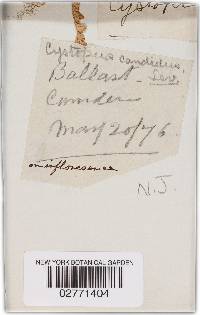 Cystopus candidus,
Ballast - Lev.
Camden
May 20/76.
on inflorescence
N.J.
NEW YORK BOTANICAL GARDEN
02771404